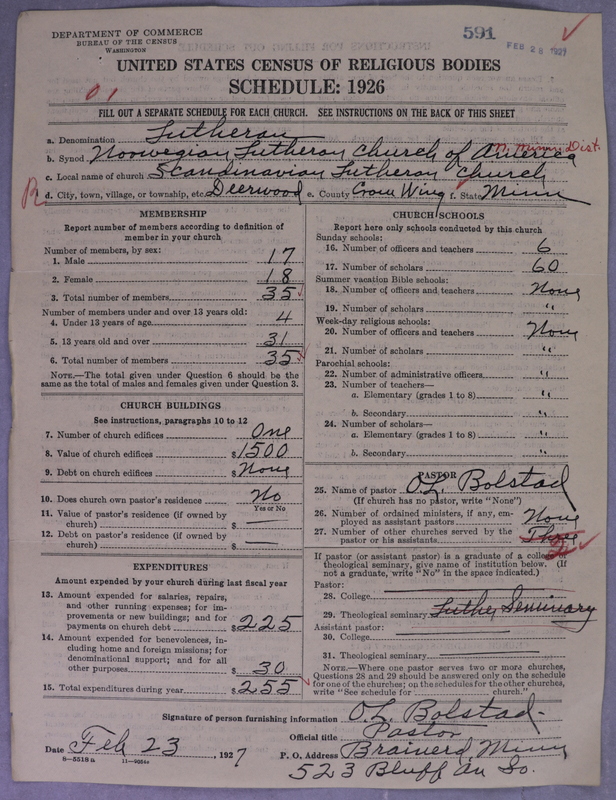 DEPARTMENT OF COMMERCE
BUREAU OF THE CENSUS
WASHINGTON
591
FEB 28 1927
UNITED STATES CENSUS OF RELIGIOUS BODIES
SCHEDULE: 1926
01
FILL OUT A SEPARATE SCHEDULE FOR EACH CHURCH. SEE INSTRUCTIONS ON THE BACK OF THIS SHEET
a. Denomination Lutheran
b. Synod Norwegian Lutheran Church of America N. Minn. Dist.
c. Local name of church Scandinavian Lutheran Church
R d. City, town, village, or township, etc. Deerwood e. County Crow Wing f. State Minn
MEMBERSHIP
Report number of members according to definition of
member in your church
Number of members, by sex:
1. Male 17
2. Female 18
3. Total number of members 35
Number of members under and over 13 years old:
4. Under 13 years of age 4
5. 13 years old and over 31
6. Total number of members 35
NOTE.—The total given under Question 6 should be the
same as the total of males and females given under Question 3.
CHURCH BUILDINGS
See instructions, paragraphs 10 to 12
7. Number of church edifices One
8. Value of church edifices $ 1500
9. Debt on church edifices $ None
10. Does church own pastor's residence No
Yes or No
11. Value of pastor's residence (if owned by
church) $ —
12. Debt on pastor's residence (if owned by
church) $ —
EXPENDITURES
Amount expended by your church during last fiscal year
13. Amount expended for salaries, repairs,
and other running expenses; for im-
provements or new buildings; and for
payments on church debt $ 225
14. Amount expended for benevolences, in-
cluding home and foreign missions; for
denominational support; and for all
other purposes $ 30
15. Total expenditures during year $ 255
CHURCH SCHOOLS
Report here only schools conducted by this church
Sunday schools:
16. Number of officers and teachers 6
17. Number of scholars 60
Summer vacation Bible schools:
18. Number of officers and teachers None
19. Number of scholars "
Week-day religious schools:
20. Number of officers and teachers None
21. Number of scholars "
Parochial schools:
22. Number of administrative officers "
23. Number of teachers—
a. Elementary (grades 1 to 8) "
b. Secondary "
24. Number of scholars—
a. Elementary (grades 1 to 8) "
b. Secondary "
PASTOR
25. Name of pastor O.L. Bolstad
(If church has no pastor, write "None")
26. Number of ordained ministers, if any, em-
ployed as assistant pastors None
27. Number of other churches served by the
pastor or his assistants Three
If pastor (or assistant pastor) is a graduate of a college or
theological seminary, give name of institution below. (If
not a graduate, write "No" in the space indicated.)
Pastor:
28. College
29. Theological seminary Luther Seminary
Assistant pastor:
30. College
31. Theological seminary
NOTE.—Where one pastor serves two or more churches,
Questions 28 and 29 should be answered only on the schedule
for one of the churches; on the schedules for the other churches,
write "See schedule for church."
Signature of person furnishing information O.L. Bolstad
Official title Pastor
Date Feb 23, 1927 P. O. Address Brainerd Minn
8—5518a
523 Bluff Av So.